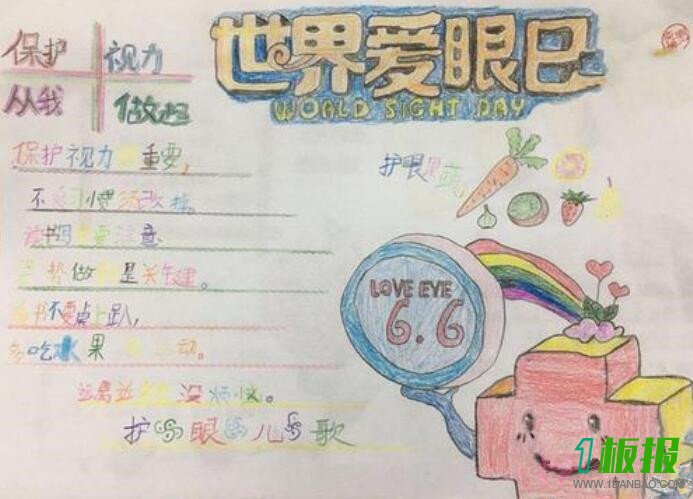 保护 视力
从我 做起
世界爱眼日
WORLD SIGHT DAY
护眼果蔬
保护视力 重要,
不 习惯 须改掉。
读书写 要注意
姿势做 是关键。
书不要桌上趴,
多吃水果 动。
远离近 没烦恼。
护眼儿歌
LOVE EYE
6.6
1板报
WWW.1BANBAO.COM